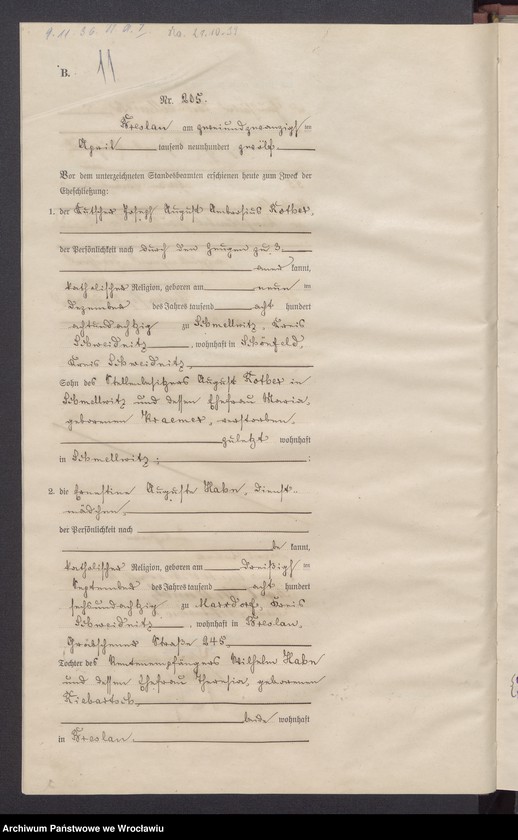 B.
11
Nr. 235.
Breslau am zweiundzwanzigsten
April tausend neunhundert zwölf
Vor dem unterzeichneten Standesbeamten erschienen heute zum Zweck der
Eheschließung:
1. der Kutscher Joseph August Ambrosius Rother,
der Persönlichkeit nach durch den Zeugen zu 3.
anerkannt,
katholischer Religion, geboren am neunten
Dezember des Jahres tausend acht hundert
achtundachtzig zu Schmellwitz, Kreis
Schweidnitz, wohnhaft in Schönfeld,
Kreis Schweidnitz,
Sohn des Stellenbesitzers August Rother in
Schmellwitz und dessen Ehefrau Maria,
geborenen Kraemer, verstorben,
zuletzt wohnhaft
in Schmellwitz;
2. die Ernestine Auguste Habn, Dienst-
mädchen,
der Persönlichkeit nach
bekannt,
katholischer Religion, geboren am dreißigsten
September des Jahres tausend acht hundert
sechsundachtzig zu Marxdorf, Kreis
Schweidnitz, wohnhaft in Breslau,
Gräbschener Straße 245,
Tochter des Rentenempfängers Wilhelm
und dessen Ehefrau Theresia, geborenen
beide wohnhaft
in Breslau.
Archiwum Państwowe we Wrocławiu